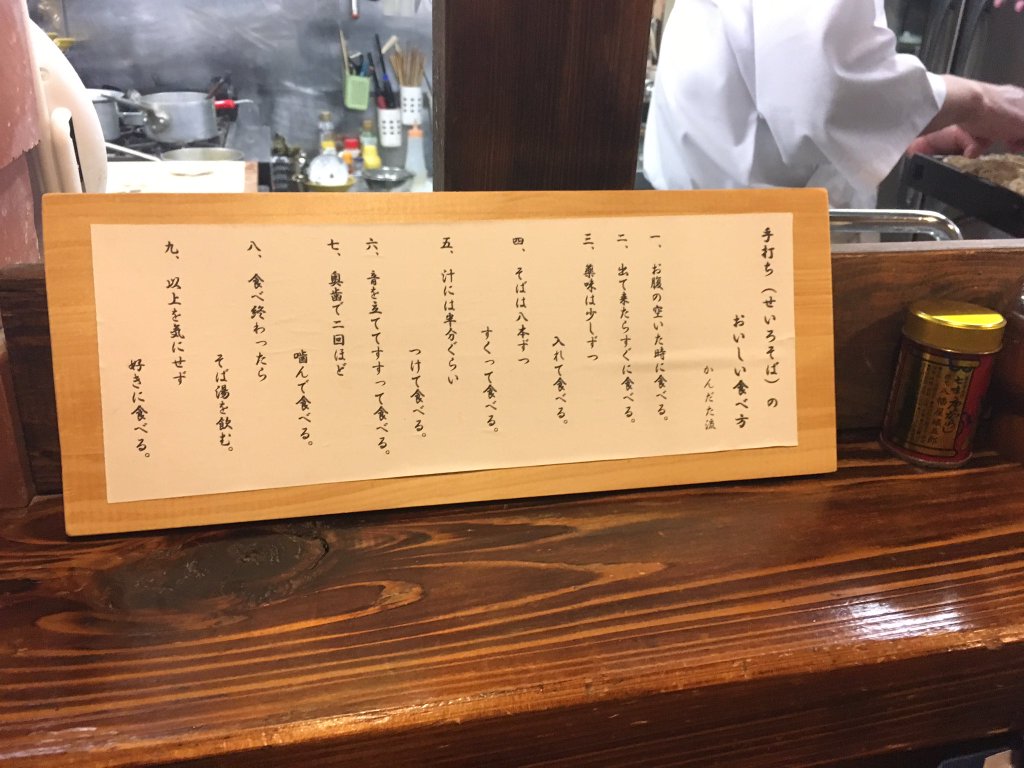 手打ち（せいろそば）の
おいしい食べ方
かんだた流
一、お腹の空いた時に食べる。
二、出て来たらすぐに食べる。
三、薬味は少しずつ
入れて食べる。
四、そばは八本ずつ
すくって食べる。
五、汁には半分ぐらい
つけて食べる。
六、音を立ててすすって食べる。
七、奥歯で二回ほど
噛んで食べる。
八、食べ終わったら
そば湯を飲む。
九、以上を気にせず
好きに食べる。
七味
八幡屋礒五郎